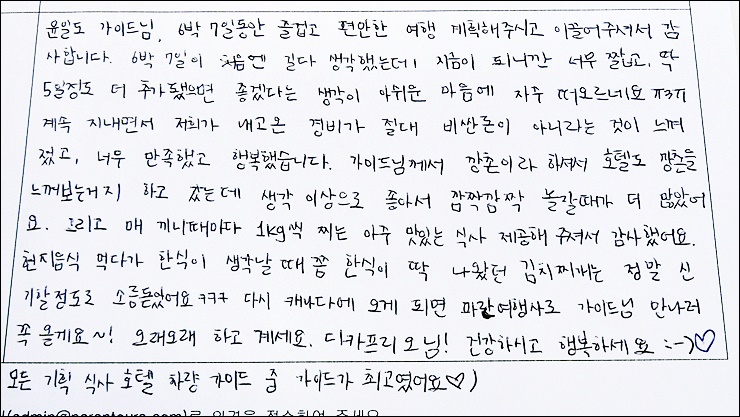 윤일도 가이드님, 6박 7일동안 즐겁고 편안한 여행 계획해주시고 이끌어주셔서 감
사합니다. 6박 7일이 처음엔 길다 생각했는데 지금이 되니깐 너무 짧고, 딱
5일정도 더 추가됐으면 좋겠다는 생각이 아쉬운 마음에 자주 떠오르네요 ㅠ3ㅠ
계속 지내면서 저희가 내고온 경비가 절대 비싼돈이 아니라는 것이 느껴
졌고, 너무 만족했고 행복했습니다. 가이드님께서 깡촌이라 하셔서 호텔도 깡촌을
느껴보는거지 하고 갔는데 생각 이상으로 좋아서 깜짝깜짝 놀랄때가 더 많았어
요. 그리고 매 끼니때마다 1kg씩 찌는 아주 맛있는 식사 제공해 주셔서 감사했어요.
현지음식 먹다가 한식이 생각날 때쯤 한식이 딱 나왔던 김치찌개는 정말 신
기할정도로 소름돋았어요 ㅋㅋㅋ 다시 캐나다에 오게 되면 파란여행사로 가이드님 만나러
꼭 올게요~! 오래오래 하고 계세요. 디카프리오님! 건강하시고 행복하세요 :-)♡
모든 기획 식사 호텔 차량 가이드 중 가이드가 최고였어요♡)
(admin@parantours.com)로 의견을 접수하여 주세요